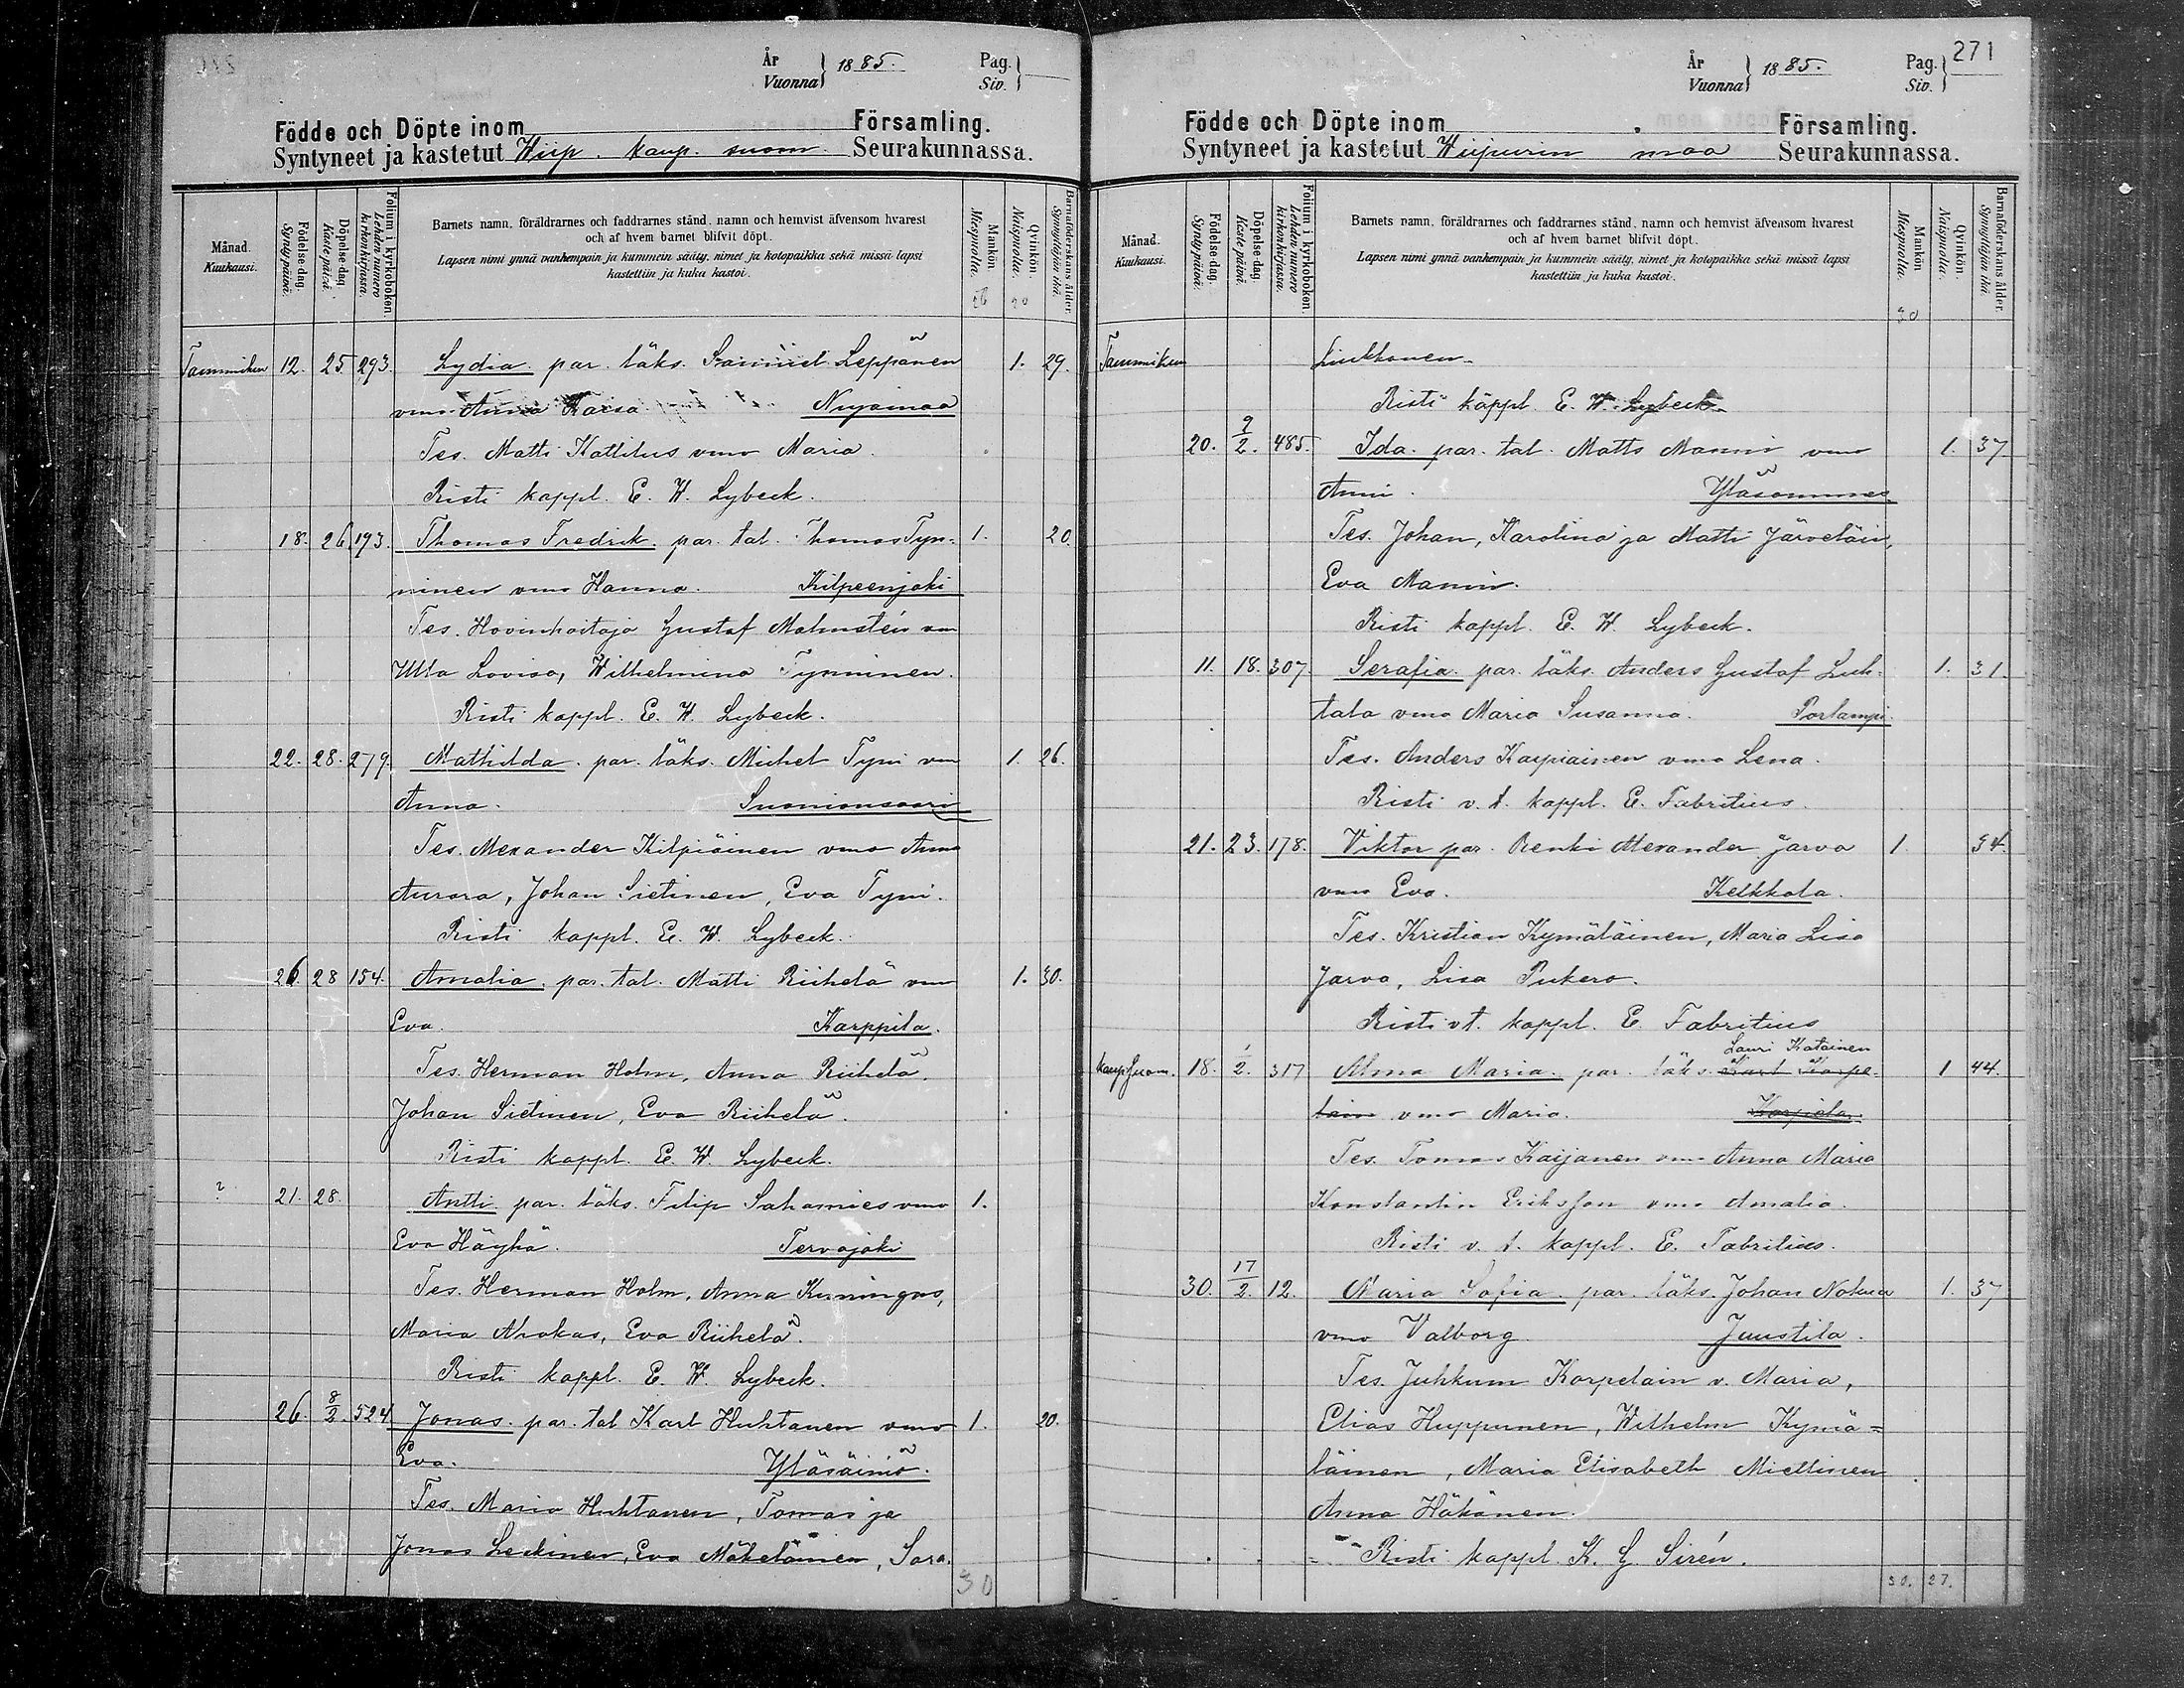 År
Vuonna
1885.
Pag.
Siv.
Födde och Döpte inom Församling.
Syntyneet ja kastetut Wiip. kaup. suom. Seurakunnassa.
Månad.
Kuukausi.
Födelse-dag.
Synty päivä.
Döpelse-dag.
Kaste päivä.
Folium i kyrkoboken
Lehden numero kirkonkirjassa.
Barnets namn, föräldrarnes och faddrarnes stånd, namn och hemvist äfvensom hvarest
och af hvem barnet blifvit döpt.
Lapsen nimi ynnä vanhempain ja kummein sääty, nimet ja kotopaikka sekä missä lapsi
kastettiin ja kuka kastoi.
Mankön
Miespuolia.
Qvinkön.
Naispuolia.
Barnaföderskans ålder.
Synnyttäjän ikä.
Tammikuu 12. 25 293. Lydia par. läks. Samuel Leppänen 1. 29.
vmo Anna Kaisa Nuijamaa
Tes. Matti Kattilus vmo Maria.
Risti kappl. E. W. Lybeck.
18. 26 193. Thomas Fredrik par. tal. Thomas Tyn- 1. 20.
ninen vmo Hanna. Kilpeenjoki
Tes. Hovinhoitaja Gustaf Malmstén vm
Ulla Lovisa, Wilhelmina Tynninen.
Risti kappl. E. W. Lybeck.
22. 28. 279. Mathilda. par. läks. Michel Tyni vm 1. 26.
Anna. Suonionsaari
Tes. Alexander Kilpiäinen vmo Anna
Aurora, Johan Sietinen, Eva Tyni.
Risti kappl. E. W. Lybeck.
26. 28 154. Amalia. par. tal. Matti Riihelä vm 1. 30.
Eva. Karppila.
Tes. Herman Holm, Anna Riihelä.
Johan Sietinen, Eva Riihelä.
Risti kappl. E. W. Lybeck.
? 21. 28. Antti par. läks. Filip Sahamies vmo 1.
Eva Häyhä. Tervajoki
Tes. Herman Holm, Anna Kuningas,
Maria Nrokas, Eva Riihelä.
Risti kappl. E. W. Lybeck.
26. 8/2. 524 Jonas. par. tal Karl Huhtanen vmo 1. 20.
Eva. Yläsäiniö.
Tes. Maria Huhtanen, Tomas ja
Jonas Leckinen, Eva Mäkeläinen, Sara.
30
År
Vuonna
1885.
Pag.
Siv.
271
Födde och Döpte inom Församling.
Syntyneet ja kastetut Wiipurin maa Seurakunnassa.
Månad.
Kuukausi.
Födelse-dag.
Synty päivä.
Döpelse-dag.
Kaste päivä.
Folium i kyrkoboken.
Lehden numero kirkonkirjassa.
Barnets namn, föräldrarnes och faddrarnes stånd, namn och hemvist äfvensom hvarest
och af hvem barnet blifvit döpt.
Lapsen nimi ynnä vanhempain ja kummein sääty, nimet ja kotopaikka sekä missä lapsi
kastettiin ja kuka kastoi.
Mankön
Miespuolia.
Qvinkön.
Naispuolia.
Barnaföderskans ålder.
Synnyttäjän ikä.
30
Tammikuu Liukkonen.
Risti kappl. E. W. Lybeck.
20. 9/2. 485. Ida. par. tal. Matts Manni vmo 1. 37
Anni. Yläsommee
Tes. Johan, Karolina ja Matti Järveläin,
Eva Mannin.
Risti kappl. E. W. Lybeck.
11. 18. 307. Serafia. par. läks. Anders Gustaf Luh- 1. 31.
tala vmo Maria Susanna. Porlampi.
Tes. Anders Karpiainen vmo Lena.
Risti v. t. kappl. E. Fabritius.
21. 23. 178. Viktor par. Renki Alexander Jarva 1 34.
vmo Eva. Kelkkala.
Tes. Kristian Kymäläinen, Maria Lisa
Jarva, Lisa Pukero.
Risti vt. kappl. E. Fabritius
Lauri Katainen
kaup suom. 18. 1/2. 317 Alma Maria. par. läks. Karl Karpe- 1 44.
lain vmo Maria. Karpiela.
Tes. Tomas Kaijanen vmo Anna Maria
Konstantin Eriksson vmo Amalia.
Risti v. t. kappl. E. Fabritius.
30. 17/2. 12. Maria Sofia. par. läks. Johan Nokua 1. 37
vmo Valborg. Juustila.
Tes. Juhkum Korpelain v. Maria,
Elias Huppunen, Wilhelm Kymä=
läinen, Maria Elisabeth Miettinen
Anna Häkänen.
Risti kappl. K. G. Sirén.
30. 27.